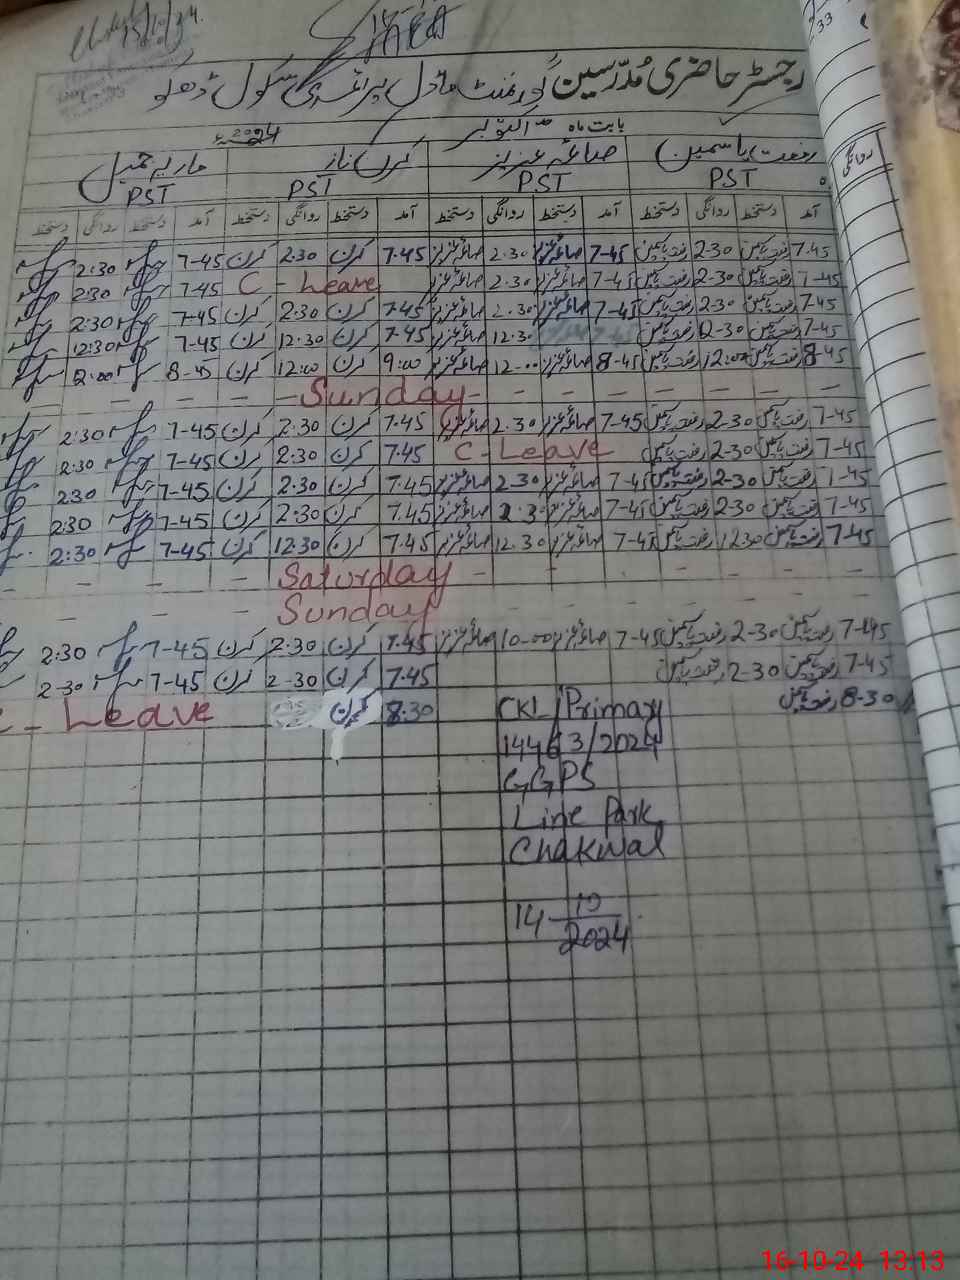 15/10/24
AREA
233
رجسٹر حاضری مُدرسین گورنمنٹ ماڈل پرائمری سکول ڈھکو
بابت ماہ اکتوبر 2024
رفعت یاسمین صائمہ عزیز کرن ناز ماریہ جمیل
PST PST PST PST
روانگی
آمد دستخط روانگی دستخط آمد دستخط روانگی دستخط آمد دستخط روانگی دستخط آمد دستخط روانگی دستخط
7.45 رفعت یاسمین 2-30 رفعت یاسمین 7-45 صائمہ عزیز 2.30 صائمہ عزیز 7.45 کرن 2.30 کرن 7-45 2:30
7-45 رفعت یاسمین 2-30 رفعت یاسمین 7-45 صائمہ عزیز 2.30 صائمہ عزیز C - Leave 7-45 2:30
7-45 رفعت یاسمین 2-30 رفعت یاسمین 7-45 صائمہ عزیز 2.30 صائمہ عزیز 7.45 کرن 2:30 کرن 7-45 2:30
7-45 رفعت یاسمین 2-30 رفعت یاسمین 12.30 صائمہ عزیز 7-45 کرن 12.30 کرن 7-45 12:30
8-45 رفعت یاسمین 12:00 رفعت یاسمین 8-45 صائمہ عزیز 12-00 صائمہ عزیز 9:00 کرن 12:00 کرن 8-45 2:00
- - - - - Sunday - - - - -
7-45 رفعت یاسمین 2-30 رفعت یاسمین 7-45 صائمہ عزیز 2.30 صائمہ عزیز 7.45 کرن 2:30 کرن 7-45 2:30
7-45 رفعت یاسمین 2-30 رفعت یاسمین C - Leave 7.45 کرن 2:30 کرن 7-45 2:30
7-45 رفعت یاسمین 2-30 رفعت یاسمین 7-45 صائمہ عزیز 2-30 صائمہ عزیز 7.45 کرن 2:30 کرن 7-45 2:30
7-45 رفعت یاسمین 2-30 رفعت یاسمین 7-45 صائمہ عزیز 2.30 صائمہ عزیز 7.45 کرن 2:30 کرن 7-45 2:30
7-45 رفعت یاسمین 12.30 رفعت یاسمین 7-45 صائمہ عزیز 12.30 صائمہ عزیز 7.45 کرن 12:30 کرن 7-45 2:30
- - - - - Saturday - - - - -
- - - - - Sunday - - - - -
7-45 رفعت یاسمین 2-30 رفعت یاسمین 7-45 صائمہ عزیز 10-00 صائمہ عزیز 7.45 کرن 2:30 کرن 7-45 2:30
7-45 رفعت یاسمین 2-30 رفعت یاسمین 7.45 کرن 2-30 کرن 7-45 2-30
8-30 رفعت یاسمین 8:30 کرن C - Leave
CKL/Primary
14463/2024
GGPS
Line Park
Chakwal
14-10/2024
16-10-24 13:13